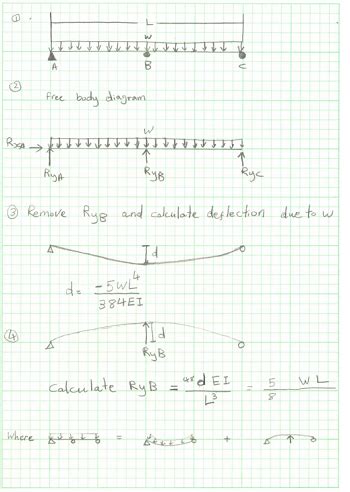 ①
L
w
A B C
②
Free body diagram
w
RxA
RyA RyB RyC
③ Remove RyB and calculate deflection due to w
d
d = -5WL⁴
384EI
④
d
RyB
Calculate RyB = 48 d EI / L³ = 5/8 WL
Where = +